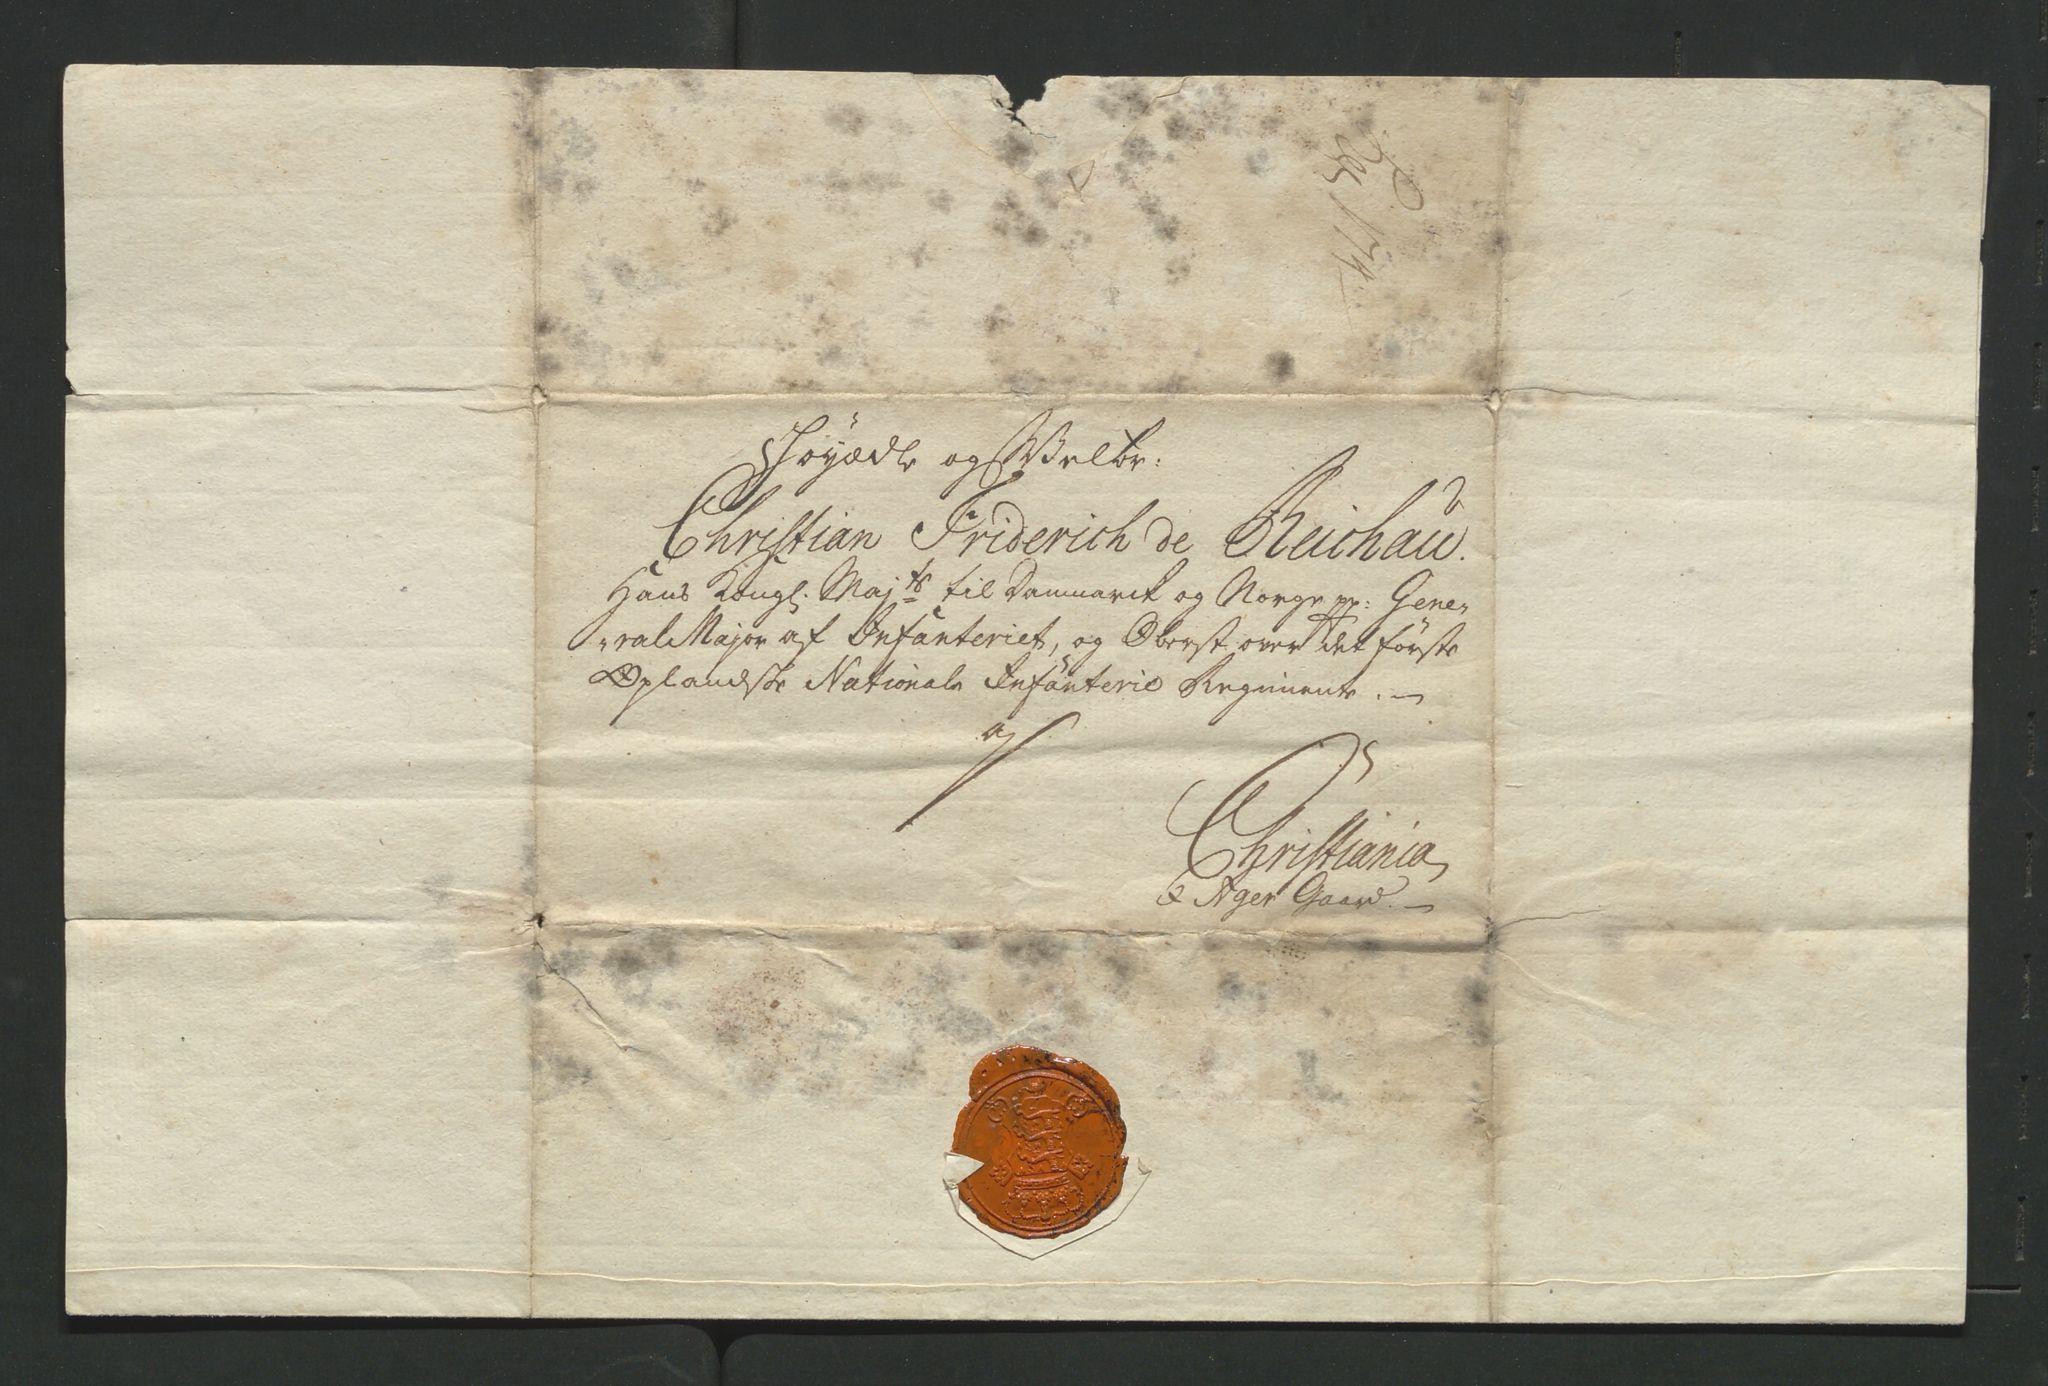 Høyædle og Welbr:
Christian Friderich de Reichau.
Hans Kongl. Maj.ts til Danmarck og Norge pp: Gene„
„ral Major af Infanteriet, og Oberst over det første
Oplandske Nationale Infanterie Regimente. —
a/
Christiania
& Ager Gaard. —